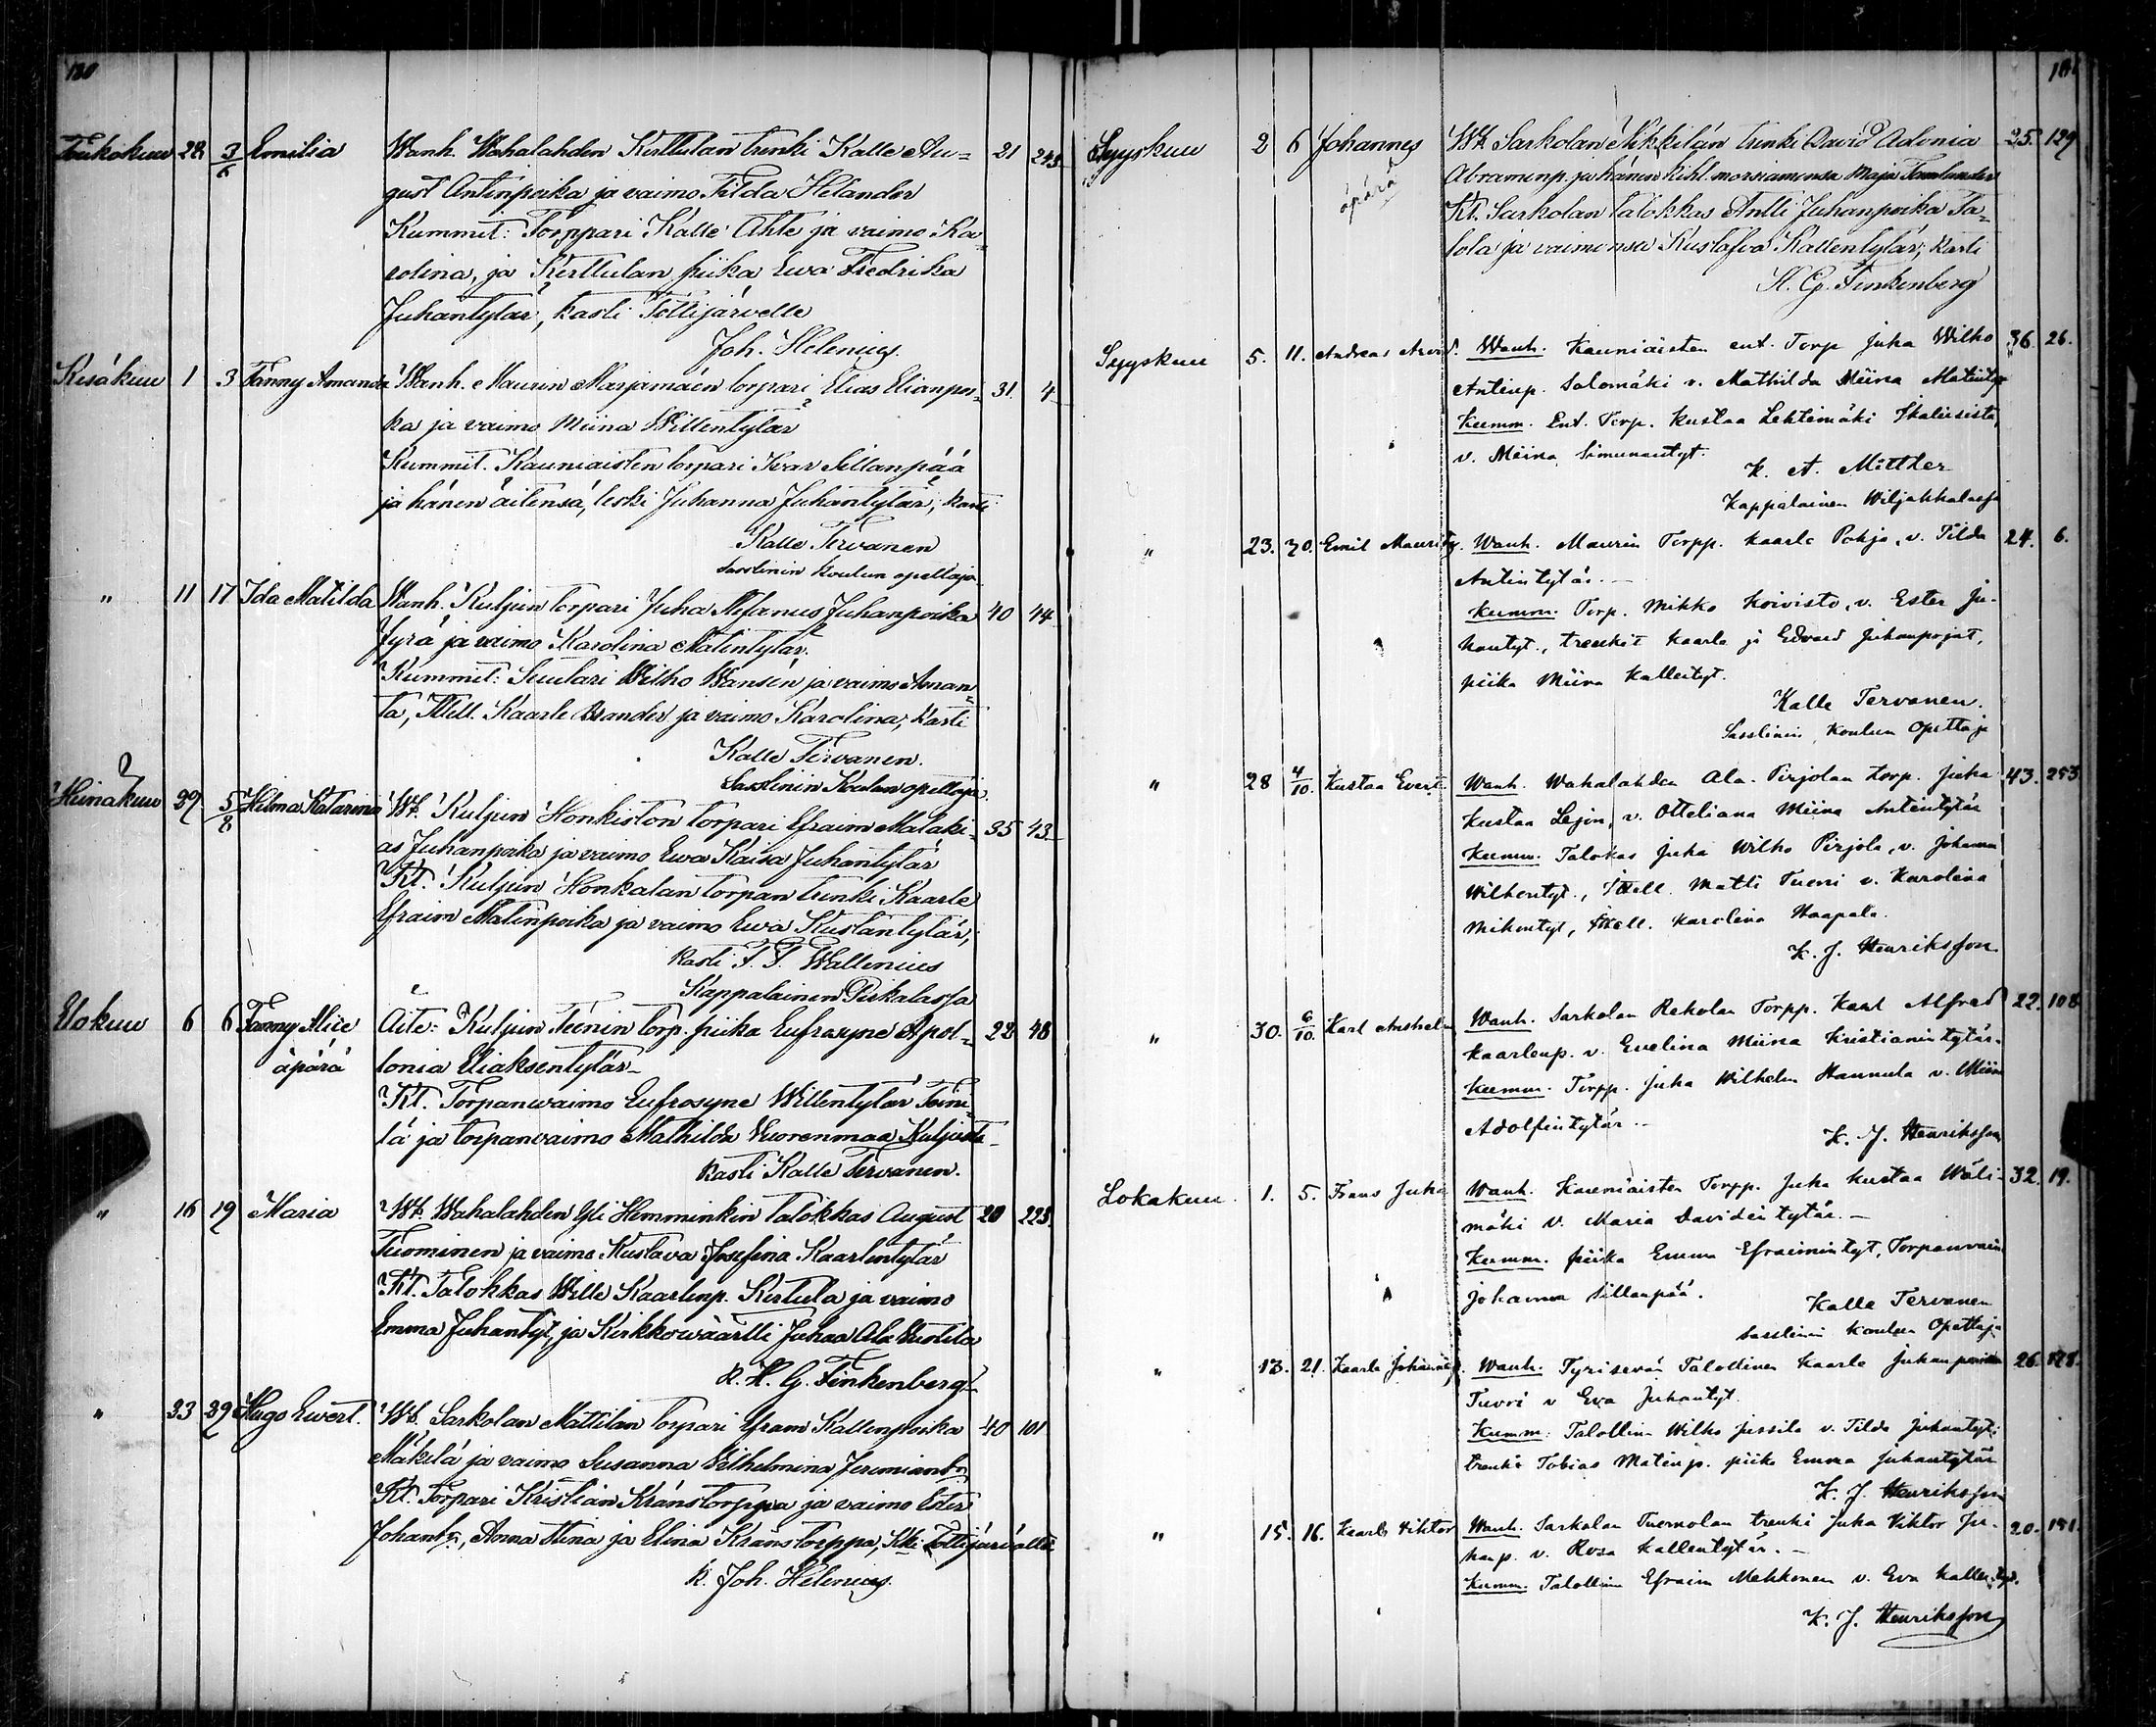 180
Toukokuu 28 3/6 Emilia Wanh. Wahalahden Kerttulan trenki Kalle Au= 21 243
gust Antinpoika ja vaimo Tilda Helander
Kummit: Torppari Kalle Ahte ja vaimo Ka=
rolina, ja Kerttulan piika Ewa Fredrika
Juhantytär, kasti Tottijärvellä
Joh. Helenius.
Kesäkuu 1 3 Fanny Amanda Wanh. Maurin Marjamäen torpari Elias Elianpoi= 31 4
ka ja vaimo Miina Willentytär
Kummit. Kauniaisten torpari Ivar Sillanpää
ja hänen äitensä, leski Juhanna Juhantytär, kasti
Kalle Tervanen
Sasslinin koulun opettaja
" 11 17 Ida Matilda Wanh. Kuljun torpari Juha Stefanus Juhanpoika 40 44
Jyrä ja vaimo Karolina Matintytär.
Kummit: Suutari Wilho Wansén ja vaimo Aman=
ta, Itell. Kaarle Brander ja vaimo Karolina; kasti
Kalle Tervanen.
Sasslinin Koulun opettaja.
Heinäkuu 29 5/8 Hilma Katarina Wt. Kuljun Honkiston torpari Efraim Malaki= 35 43
as Juhanpoika ja vaimo Ewa Kaisa Juhantytär
Kt. Kuljun Honkalan torpan trenki Kaarle
Efraim Matinpoika ja vaimo Ewa Kustantytär;
kasti F. F. Wallenius
Kappalainen Pirkalassa
Elokuu 6 6 Fanny Alice Äite: Kuljun Teenin torp. piika Eufrosyne Apol= 22 48
äpärä lonia Eliaksentytär
Kt. Torpanwaimo Eufrosyne Willentytär Teini=
lä ja torpanvaimo Mathilda Vuorenmaa Kuljusta
kasti Kalle Tervanen.
" 16 19 Maria Wt. Wahalahden Yli Hemminkin talokkas August 20 228
Tuominen ja vaimo Kustava Josefina Kaarlentytär
Kt. Talokkas Wille Kaarlenp. Kertula ja vaimo
Emma Juhantyt, ja Kirkkowäärtti Juhaa Ala Uotila
k. H. G. Finkenberg
" 23 29 Hugo Ewert. Wt. Sarkolan Mattilan torpari Efram Kallenpoika 40 101
Mäkelä ja vaimo Susanna Wilhelmina Jeremiantr
Kt. Torpari Kristian Kränstorppa ja vaimo Ester
Johantr, Anna Stina ja Elina Kränstorppa, Kki Tottijärvältä
k. Joh. Helenius.
181
Syyskuu 2 6 Johannes Wt. Sarkolan Nikkilän trenki David Adonia 25. 129
äpärä Abraminp. ja hänen kihl. morsiamensa Maja Tamlander
Kt. Sarkolan talokkas Antti Juhanpoika Ta=
lola ja vaimonsa Kustafva Kallentytär; kasti
H. G. Finkenberg
Syyskuu 5. 11. Andreas Arvid. Wanh. Kauniaisten ent. Torp Juha Wilho 36. 26.
Antinp. Salomäki v. Mathilda Miina Matintyt
Kumm. Ent. Torp. Kustaa Lehtimäki Ikalisista,
v. Miina Simunantyt.
K. A. Mittler
Kappalainen Wiljakkalassa
" 23. 30. Emil Mauritz. Wanh. Maurin Torpp. Kaarle Pohja, v. Tilda 24. 6.
Antintytär.
Kumm. Torp. Mikko Koivisto, v. Ester Ju-
hantyt., trenkit Kaarle ja Edvard Juhanpojat,
piika Miina Kallentyt.
Kalle Tervanen.
Sasslinin Koulun Opettaja
" 28 4/10. Kustaa Evert. Wanh. Wahalahden Ala-Pirjolan torp. Juha 43. 253
Kustaa Lejon, v. Otteliana Miina Antintytär
Kumm. Talokas Juha Wilho Pirjola, v. Johanna
Wilhontyt., Itell. Matti Tuomi v. Karolina
Mikontyt, Itell. Karolina Haapala.
K. J. Henriksson
" 30. 6/10. Karl Anshelm Wanh. Sarkolan Rekolan Torpp. Karl Alfred 22. 108
Kaarlenp. v. Evelina Miina Kristianintytär.
Kumm. Torpp. Juha Wilhelm Hannula v. Miina
Adolfintytär.
K. J. Henriksson
Lokakuu 1. 5. Frans Juha Wanh. Kauniaisten Torpp. Juha Kustaa Wäli- 32. 19.
mäki v. Maria Davidintytär.
Kumm. piika Emma Efraimintyt, Torpanvaim
Johanna Sillanpää.
Kalle Tervanen
Sasslinin koulun Opettaja
" 13. 21. Kaarle Johannes. Wanh. Tyrisevän Talollinen Kaarle Juhanpoika 26. 178.
Tuori v Eva Juhantyt.
Kumm: Talollin Wilho Jussila v. Tilda Juhantyt;
trenki Tobias Matinp. piika Emma Juhantytär
K. J. Henriksson
" 15. 16. Kaarle Viktor Wanh. Sarkolan Tuomolan trenki Juha Viktor Ju- 20. 151.
hanp. v. Rosa Kallentytär.
Kumm. Talollinen Efraim Mehkonen v. Eva Kallentyt.
K. J. Henriksson